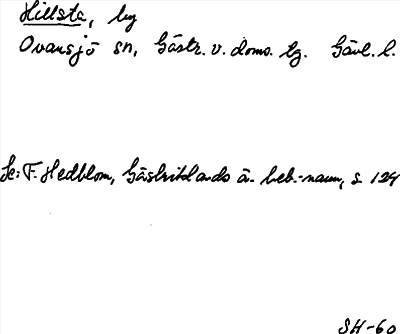 Hillsta, by
Ovansjö sn, Gästr. v. doms. tg. Gävl. l.
Se: F. Hedblom, Gästriklands ä. beb.-namn, s 124
SH-60